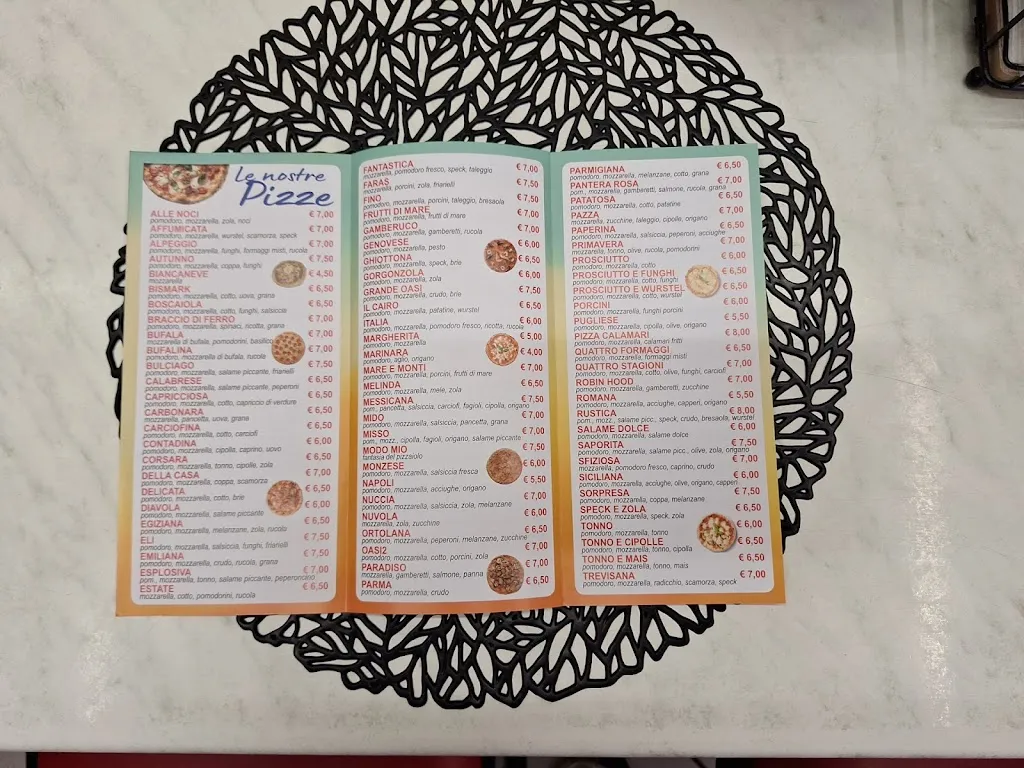 Le nostre
Pizze
ALLE NOCI € 7,00
pomodoro, mozzarella, zola, noci
AFFUMICATA € 7,00
pomodoro, mozzarella, wurstel, scamorza, speck
ALPEGGIO € 7,00
pomodoro, mozzarella, funghi, formaggi misti, rucola
AUTUNNO € 7,50
pomodoro, mozzarella, coppa, funghi
BIANCANEVE € 4,50
mozzarella
BISMARK € 6,50
pomodoro, mozzarella, cotto, uova, grana
BOSCAIOLA € 6,50
pomodoro, mozzarella, cotto, funghi, salsiccia
BRACCIO DI FERRO € 7,00
pomodoro, mozzarella, spinaci, ricotta, grana
BUFALA € 7,00
mozzarella di bufala, pomodorini, basilico
BUFALINA € 7,00
pomodoro, mozzarella di bufala, rucola
BULCIAGO € 7,50
pomodoro, mozzarella, salame piccante, friarielli
CALABRESE € 6,50
pomodoro, mozzarella, salame piccante, peperoni
CAPRICCIOSA € 6,50
pomodoro, mozzarella, cotto, capriccio di verdure
CARBONARA € 6,50
mozzarella, pancetta, uova, grana
CARCIOFINA € 6,50
pomodoro, mozzarella, cotto, carciofi
CONTADINA € 6,00
pomodoro, mozzarella, cipolle, caprino, uovo
CORSARA € 6,50
pomodoro, mozzarella, tonno, cipolle, zola
DELLA CASA € 7,00
pomodoro, mozzarella, coppa, scamorza
DELICATA € 6,50
pomodoro, mozzarella, cotto, brie
DIAVOLA € 6,00
pomodoro, mozzarella, salame piccante
EGIZIANA € 6,50
pomodoro, mozzarella, melanzane, zola, rucola
ELI € 7,50
pomodoro, mozzarella, salsiccia, funghi, friarielli
EMILIANA € 7,50
pomodoro, mozzarella, crudo, rucola, grana
ESPLOSIVA € 7,00
pom., mozzarella, tonno, salame piccante, peperoncino
ESTATE € 6,50
mozzarella, cotto, pomodorini, rucola
FANTASTICA € 7,00
mozzarella, pomodoro fresco, speck, taleggio
FARAS € 7,50
mozzarella, porcini, zola, friarielli
FINO € 7,50
pomodoro, mozzarella, porcini, taleggio, bresaola
FRUTTI DI MARE € 7,00
pomodoro, mozzarella, frutti di mare
GAMBERUCO € 7,00
pomodoro, mozzarella, gamberetti, rucola
GENOVESE € 6,00
pomodoro, mozzarella, pesto
GHIOTTONA € 6,50
pomodoro, mozzarella, speck, brie
GORGONZOLA € 6,00
pomodoro, mozzarella, zola
GRANDE OASI € 7,50
pomodoro, mozzarella, crudo, brie
IL CAIRO € 6,50
pomodoro, mozzarella, patatine, wurstel
ITALIA € 6,00
pomodoro, mozzarella, pomodoro fresco, ricotta, rucola
MARGHERITA € 5,00
pomodoro, mozzarella
MARINARA € 4,00
pomodoro, aglio, origano
MARE E MONTI € 7,00
pomodoro, mozzarella, porcini, frutti di mare
MELINDA € 6,50
pomodoro, mozzarella, mele, zola
MESSICANA € 7,50
pom., pancetta, salsiccia, carciofi, fagioli, cipolla, origano
MIDO € 7,00
pomodoro, mozzarella, salsiccia, pancetta, grana
MISSO € 7,00
pom., mozz., cipolla, fagioli, origano, salame piccante
MODO MIO € 7,50
fantasia del pizzaiolo
MONZESE € 6,00
pomodoro, mozzarella, salsiccia fresca
NAPOLI € 5,50
pomodoro, mozzarella, acciughe, origano
NUCCIA € 7,00
pomodoro, mozzarella, salsiccia, zola, melanzane
NUVOLA € 6,00
mozzarella, zola, zucchine
ORTOLANA € 6,50
pomodoro, mozzarella, peperoni, melanzane, zucchine
OASI2 € 7,00
pomodoro, mozzarella, cotto, porcini, zola
PARADISO € 7,00
mozzarella, gamberetti, salmone, panna
PARMA € 6,50
pomodoro, mozzarella, crudo
PARMIGIANA € 6,50
pomodoro, mozzarella, melanzane, cotto, grana
PANTERA ROSA € 7,00
pom., mozzarella, gamberetti, salmone, rucola, grana
PATATOSA € 6,50
pomodoro, mozzarella, cotto, patatine
PAZZA € 7,00
mozzarella, zucchine, taleggio, cipolle, origano
PAPERINA € 6,50
pomodoro, mozzarella, salsiccia, peperoni, acciughe
PRIMAVERA € 7,00
mozzarella, tonno, olive, rucola, pomodorini
PROSCIUTTO € 6,00
pomodoro, mozzarella, cotto
PROSCIUTTO E FUNGHI € 6,50
pomodoro, mozzarella, cotto, funghi
PROSCIUTTO E WURSTEL € 6,50
pomodoro, mozzarella, cotto, wurstel
PORCINI € 6,00
pomodoro, mozzarella, funghi porcini
PUGLIESE € 5,50
pomodoro, mozzarella, cipolla, olive, origano
PIZZA CALAMARI € 8,00
pomodoro, mozzarella, calamari fritti
QUATTRO FORMAGGI € 6,50
pomodoro, mozzarella, formaggi misti
QUATTRO STAGIONI € 7,00
pomodoro, mozzarella, cotto, olive, funghi, carciofi
ROBIN HOOD € 7,00
pomodoro, mozzarella, gamberetti, zucchine
ROMANA € 5,50
pomodoro, mozzarella, acciughe, capperi, origano
RUSTICA € 8,00
pom., mozz., salame picc., speck, crudo, bresaola, wurstel
SALAME DOLCE € 6,00
pomodoro, mozzarella, salame dolce
SAPORITA € 7,50
pomodoro, mozzarella, salame picc., olive, zola, origano
SFIZIOSA € 7,00
mozzarella, pomodoro fresco, caprino, crudo
SICILIANA € 6,00
pomodoro, mozzarella, acciughe, olive, origano, capperi
SORPRESA € 7,50
pomodoro, mozzarella, coppa, melanzane
SPECK E ZOLA € 6,50
pomodoro, mozzarella, speck, zola
TONNO € 6,00
pomodoro, mozzarella, tonno
TONNO E CIPOLLE € 6,50
pomodoro, mozzarella, tonno, cipolla
TONNO E MAIS € 6,50
pomodoro, mozzarella, tonno, mais
TREVISANA € 7,00
pomodoro, mozzarella, radicchio, scamorza, speck